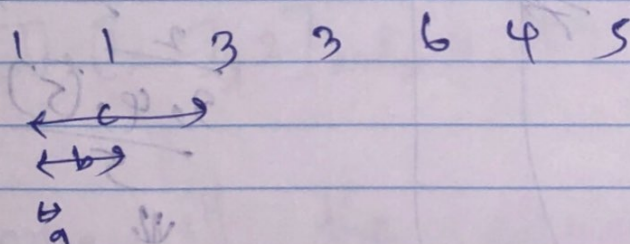 1 1 3 3 6 4 5
c
b
a